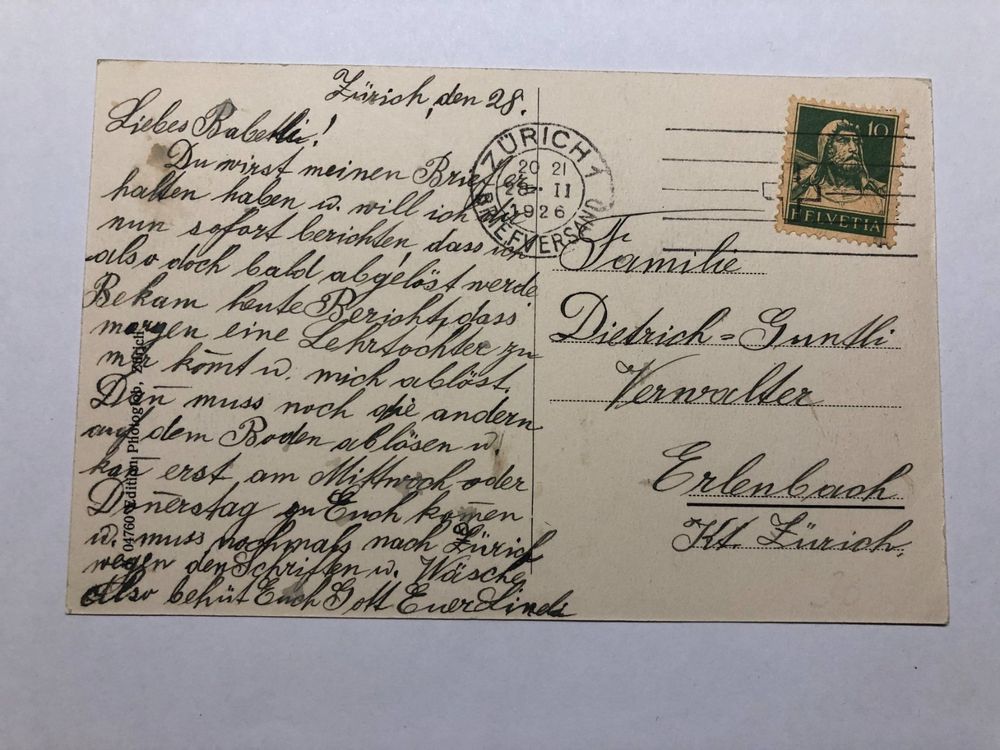 Zürich, den 28.
Liebes Babettli!
Du wirst meinen Brief er
halten haben u. will ich dir
nun sofort berichten, dass ich
also doch bald abgelöst werde
Bekam heute Bericht, dass
morgen eine Lehrtochter zu
mir kom̄t u. mich ablöst.
Dan̄ muss noch die andern
auf dem Boden ablösen u.
kan̄ erst am Mittwoch oder
Don̄erstag zu Euch kom̄en
u. muss nochmals nach Zürich
wegen den Schriften u. Wäsche
Also behüt Euch Gott Euer Linda
04760 Edition Photoglob, Zürich
ZÜRICH 1
20 21
28 II
1926
BRIEFVERSAND
10
HELVETIA
Familie
Dietrich=Guntli
Verwalter
Erlenbach
Kt. Zürich.